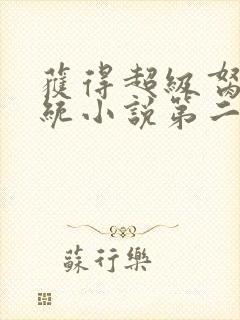 獲得超級
統小說第二
蘇行樂